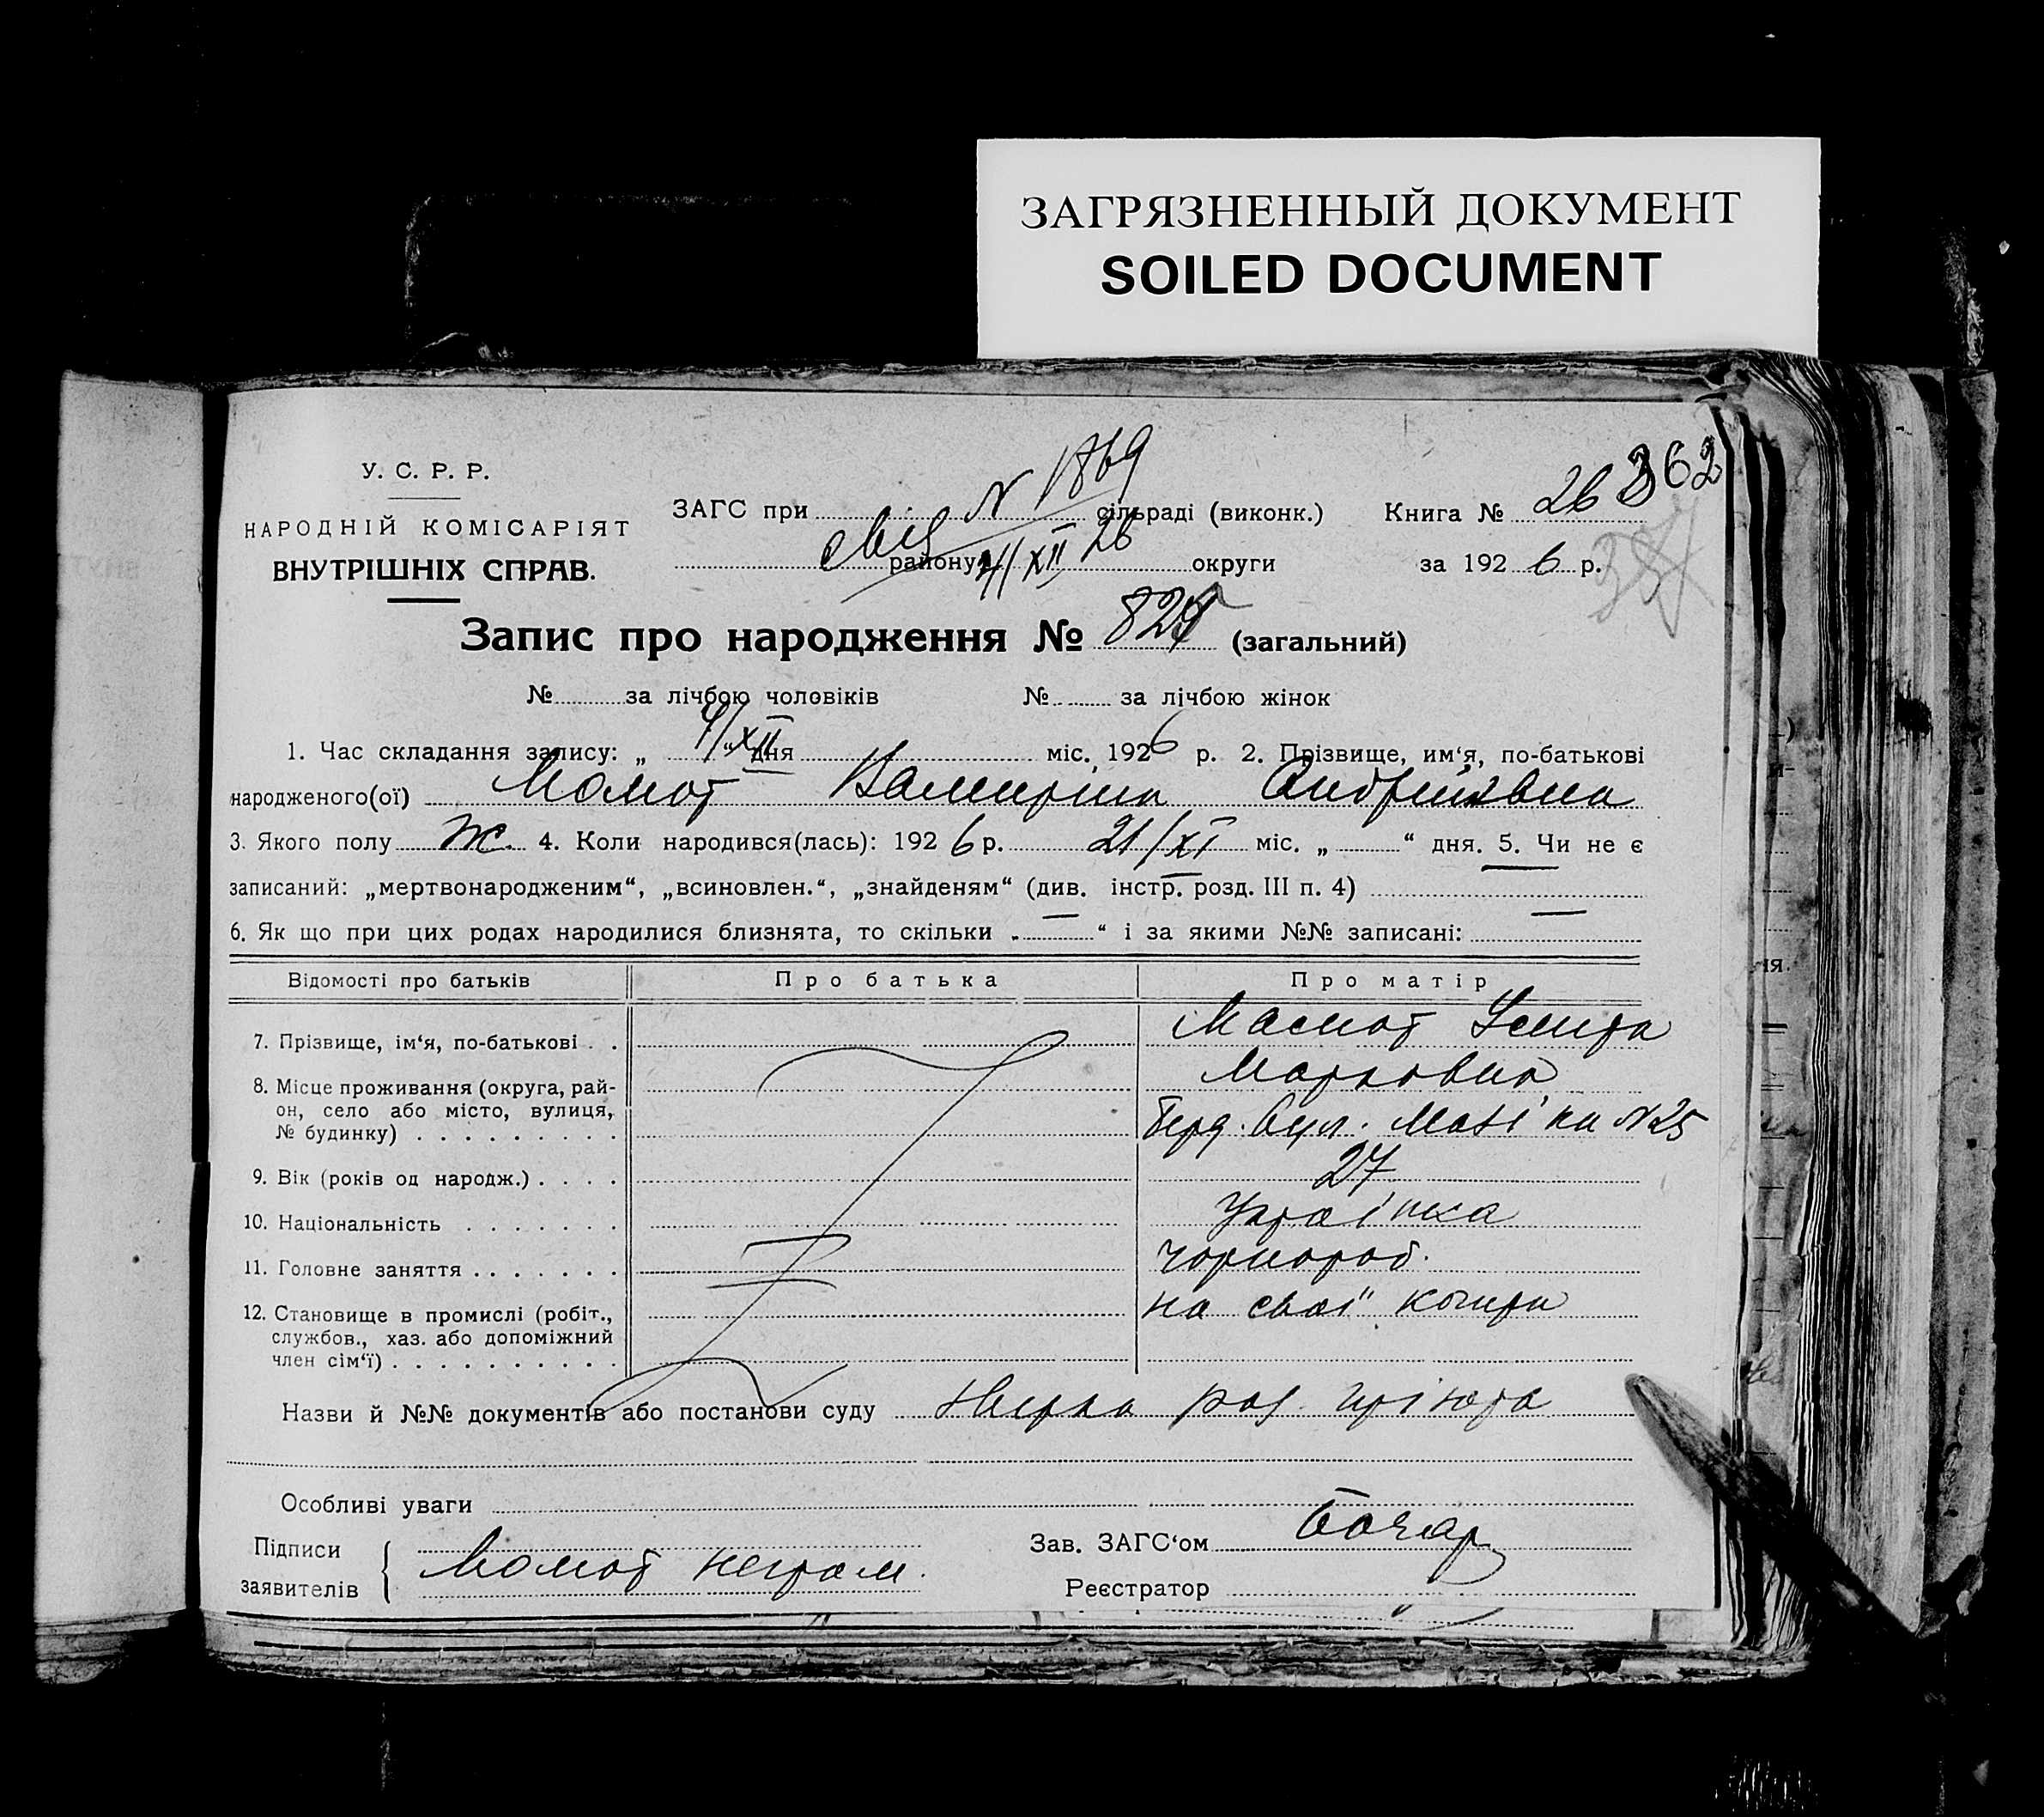 ЗАГРЯЗНЕННЫЙ ДОКУМЕНТ
SOILED DOCUMENT
У. С. Р. Р.
НАРОДНІЙ КОМІСАРІЯТ
ВНУТРІШНІХ СПРАВ.
ЗАГС при N 1869 сільраді (виконк.) Книга № 26 362
району 4/XII 26 округи за 1926 р.
Запис про народження № 825 (загальний)
№ за лічбою чоловіків № за лічбою жінок
1. Час складання запису: „ 4/XII “ дня міс. 1926 р. 2. Прізвище, им‘я, по-батькові
народженого(ої) Момот Андріївна
3. Якого полу ж. 4. Коли народився(лась): 1926 р. 21/XI міс. „ “ дня. 5. Чи не є
записаний: „мертвонародженим“, „всиновлен.“, „знайденям“ (див. інстр. розд. III п. 4) —
6. Як що при цих родах народилися близнята, то скільки „ — “ і за якими №№ записані: —
Відомості про батьків Про батька Про матір
7. Прізвище, ім‘я, по-батькові . . Момот
Марковна
8. Місце проживання (округа, рай-
он, село або місто, вулиця,
№ будинку) . . . . . . . . . Берд. вул. N 25
9. Вік (років од народж.) . . . . 27
10. Національність . . . . . . . Українка
11. Головне заняття . . . . . . . чорнороб.
12. Становище в промислі (робіт.,
службов., хаз. або допоміжний
член сім‘ї) . . . . . . . . . . на свої кошти
Назви й №№ документів або постанови суду
Особливі уваги
Підписи
заявителів Момот неграм.
Зав. ЗАГС‘ом Бочар
Реєстратор